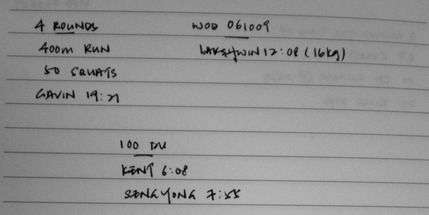 4 ROUNDS
400m RUN
50 SQUATS
GAVIN 19:21
WOD 061009
LAKSHWIN 12:08 (16kg)
100 DU
KENT 6:08
SENGYONG 7:55